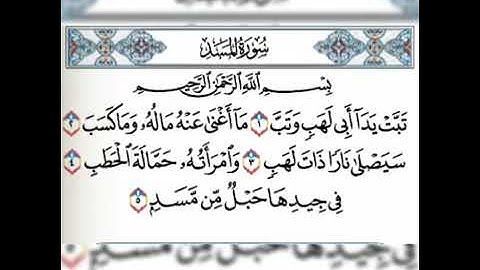 سُورَةُ المَسَدِ
بِسْمِ اللَّهِ الرَّحْمَٰنِ الرَّحِيمِ
تَبَّتْ يَدَآ أَبِى لَهَبٍ وَتَبَّ ١ مَآ أَغْنَىٰ عَنْهُ مَالُهُۥ وَمَا كَسَبَ ٢
سَيَصْلَىٰ نَارًا ذَاتَ لَهَبٍ ٣ وَٱمْرَأَتُهُۥ حَمَّالَةَ ٱلْحَطَبِ ٤
فِى جِيدِهَا حَبْلٌ مِّن مَّسَدٍۭ ٥
فِى جِيدِهَا حَبْلٌ مِّن مَّسَدٍۭ